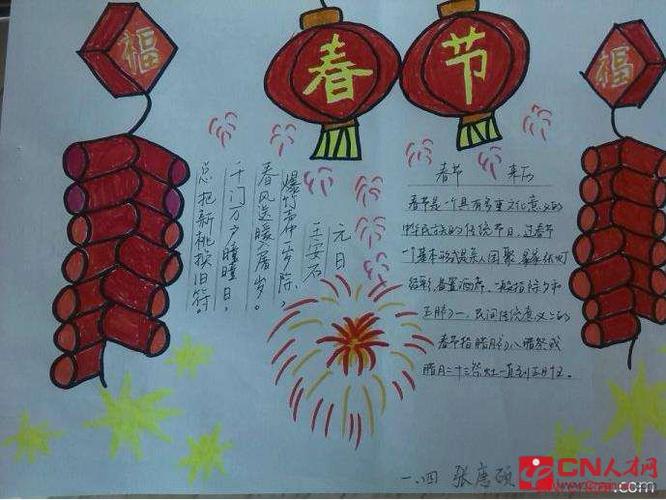 福
春节
福
元日
王安石
爆竹声中一岁除,
春风送暖屠岁。
千门万户瞳瞳日,
总把新桃换旧符。
春节 来历
春节是个具有多重文化意义的
中华民族的传统节日,过春节
一个基本形式 亲人团聚 张灯
结彩,备置酒席,一般指除夕和
正月初一,民间传统意义上的
春节指腊月初八腊祭或
腊月二十三祭灶一直到正月十五。
一.四 张 硕
CN人才网
.com